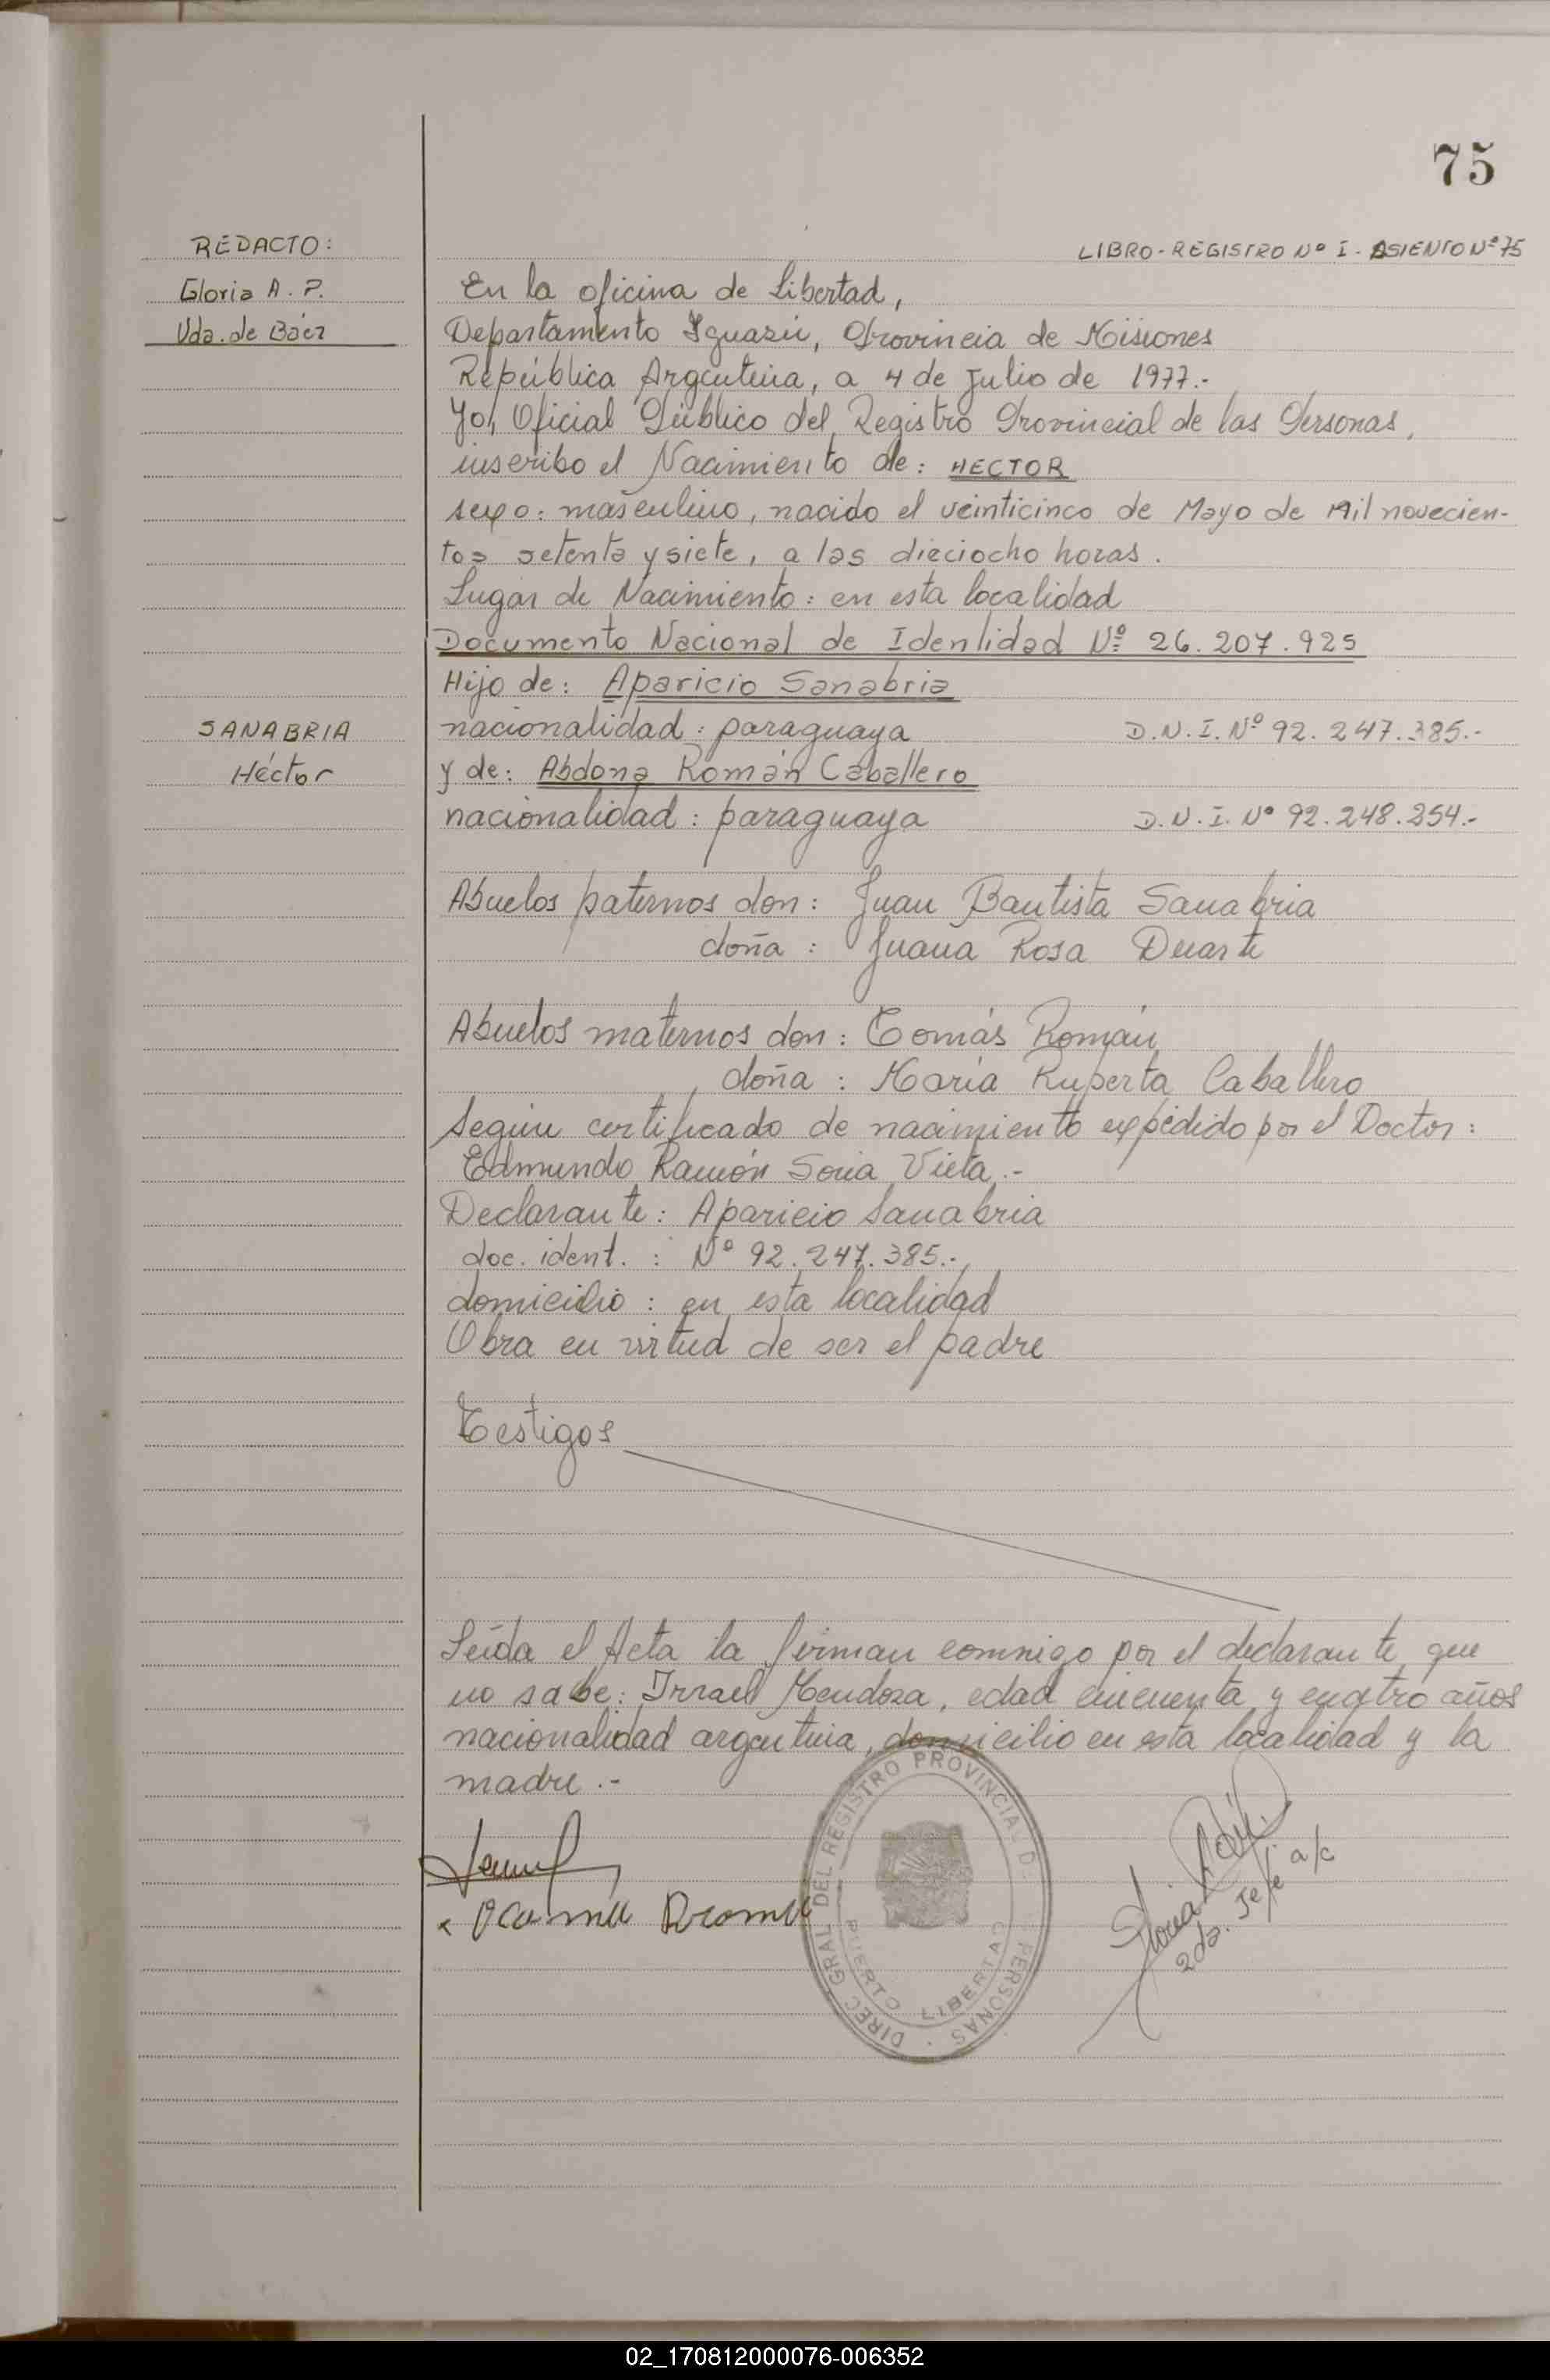 75
REDACTO:
Gloria A. P.
Vda. de Báez
SANABRIA
Héctor
LIBRO-REGISTRO Nº I - ASIENTO Nº 75
En la oficina de Libertad,
Departamento Iguazú, Provincia de Misiones
República Argentina, a 4 de Julio de 1977.-
Yo, Oficial Público del Registro Provincial de las Personas,
inscribo el Nacimiento de: HECTOR
sexo: masculino, nacido el veinticinco de Mayo de Mil novecien-
tos setenta y siete, a las dieciocho horas.
Lugar de Nacimiento: en esta localidad
Documento Nacional de Identidad Nº 26.207.925
Hijo de: Aparicio Sanabria
nacionalidad: paraguaya D.N.I. Nº 92.247.385.-
y de: Abdona Román Caballero
nacionalidad: paraguaya D.N.I. Nº 92.248.254.-
Abuelos paternos don: Juan Bautista Sanabria
doña: Juana Rosa Duarte
Abuelos maternos don: Tomás Román
doña: María Ruperta Caballero
Según certificado de nacimiento expedido por el Doctor:
Edmundo Ramón Soria Vieta.-
Declarante: Aparicio Sanabria
doc. ident.: Nº 92.247.385.-
domicilio: en esta localidad
Obra en virtud de ser el padre
Testigos
Leída el Acta la firman conmigo por el declarante que
no sabe: Irrael Mendoza, edad cincuenta y cuatro años
nacionalidad argentina, domicilio en esta localidad y la
madre.-
DIREC. GRAL DEL REGISTRO PROVINCIAL DE PERSONAS
PUERTO LIBERTAD
Gloria
2da. Jefe a/c
02_170812000076-006352